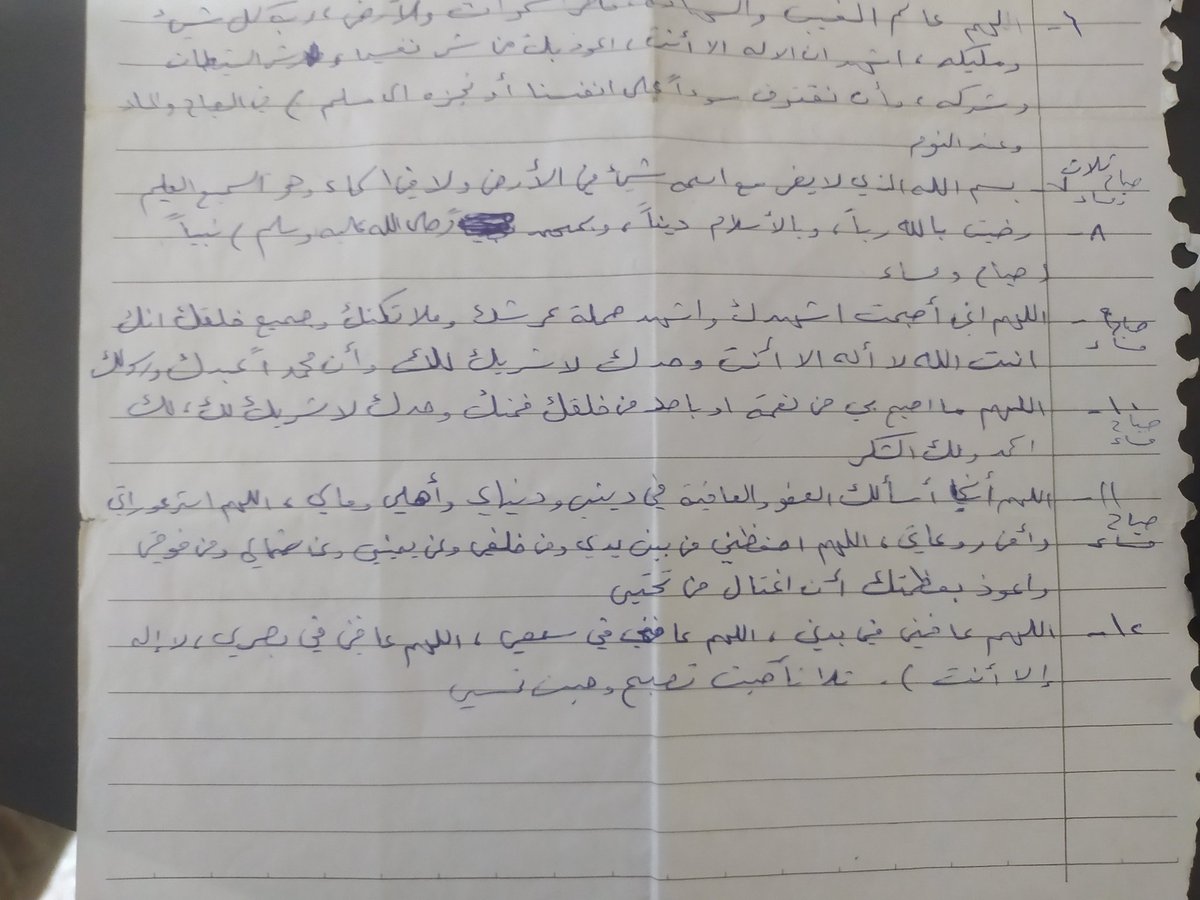 ٦- اللهم عالم الغيب والشهادة، فاطر السموات والأرض، ربه كل شيئ
ومليكه، اشهد ان لا اله الا أنت، اعوذ بك من شر نفسي، وشر الشيطان
وشركه، وأن نقترف سوءاً على انفسنا أو نجزه الى مسلم) في الصباح والمساء
وعند النوم
٧- بسم الله الذي لا يضر مع اسمه شيئ في الأرض ولا في السماء وهو السميع العليم
ثلاث صباح ومساء
٨- رضيت بالله رباً، وبالأسلام ديناً، وبمحمد (صلى الله عليه وسلم) نبياً
(صباح ومساء
صباح مساء - اللهم اني أصبحت اشهدك واشهد حملة عرشك وملائكتك وجميع خلقك انك
انت الله لا أله الا أنت وحدك لا شريك لك وأن محمداً عبدك ورسولك
١٠- اللهم ما اصبح بي من نعمة او باحد من خلقك فمنك وحدك لا شريك لك، لك
صباح مساء
الحمد ولك الشكر
١١- اللهم أني أسألك العفو والعافية في ديني ودنياي وأهلي ومالي، اللهم استر عوراتي
صباح ومساء
وأمن روعاتي، اللهم احفظني من بين يدي ومن خلفي وعن يميني وعن شمالي ومن فوقي
واعوذ بعظمتك أن اغتال من تحتي
١٢- اللهم عافيني في بدني، اللهم عافني في سمعي، اللهم عافني في بصري، لا إله
إلا أنت). ثلاثاً حين تصبح وحين تمسي